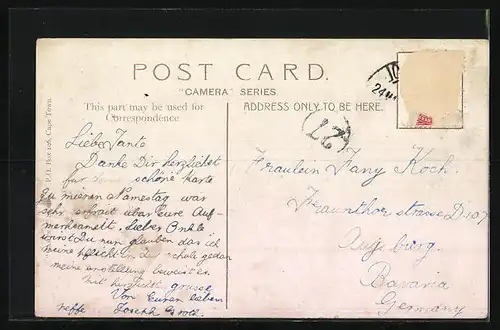 POST CARD.
"CAMERA" SERIES.
This part may be used for
Correspondence
ADDRESS ONLY TO BE HERE.
P.H. Box 126, Cape Town.
24
27
Liebe Tante
Danke Dir herzlichst
für schöne karte
zu mieren Namestag war
sehr erfreit über eure Auf-
merksamelt. Lieber Onkle
wirst Du nun glauben das ich
meine pflicht in der schule gedan
meine anstellung beweist es
mit herzlichst grusse
Von Euren lieben
neffe. Joseph Groll.
Fraulein Fany Koch.
Fraunthor strasse D.107
Augsburg.
Bavaria
Germany